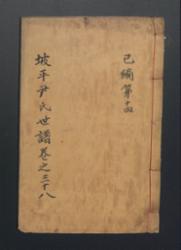 己編第十四
坡平尹氏世譜卷之三十八